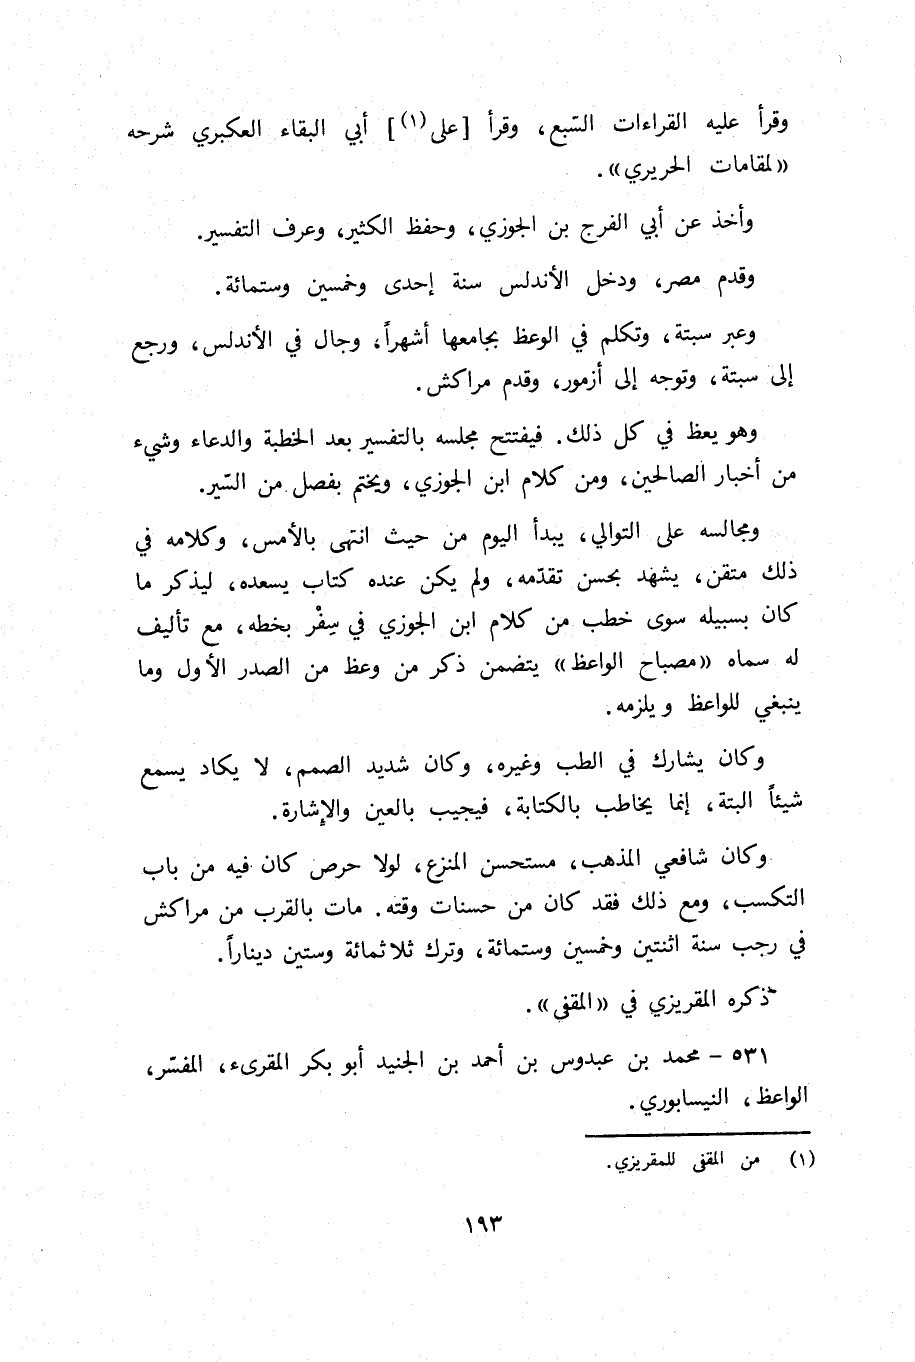 وقرأ عليه القراءات السّبع، وقرأ [على(١)] أبي البقاء العكبري شرحه
«لمقامات الحريري».
وأخذ عن أبي الفرج بن الجوزي، وحفظ الكثير، وعرف التفسير.
وقدم مصر، ودخل الأندلس سنة إحدى وخمسين وستمائة.
وعبر سبتة، وتكلم في الوعظ بجامعها أشهراً، وجال في الأندلس، ورجع
إلى سبتة، وتوجه إلى أزمور، وقدم مراكش.
وهو يعظ في كل ذلك. فيفتتح مجلسه بالتفسير بعد الخطبة والدعاء وشيء
من أخبار الصالحين، ومن كلام ابن الجوزي، ويختم بفصل من السّير.
ومجالسه على التوالي، يبدأ اليوم من حيث انتهى بالأمس، وكلامه في
ذلك متقن، يشهد بحسن تقدّمه، ولم يكن عنده كتاب يسعده، ليذكر ما
كان بسبيله سوى خطب من كلام ابن الجوزي في سِفْر بخطه، مع تأليف
له سماه «مصباح الواعظ» يتضمن ذكر من وعظ من الصدر الأول وما
ينبغي للواعظ ويلزمه.
وكان يشارك في الطب وغيره، وكان شديد الصمم، لا يكاد يسمع
شيئاً البتة، إنما يخاطب بالكتابة، فيجيب بالعين والإشارة.
وكان شافعي المذهب، مستحسن المنزع، لولا حرص كان فيه من باب
التكسب، ومع ذلك فقد كان من حسنات وقته. مات بالقرب من مراكش
في رجب سنة اثنتين وخمسين وستمائة، وترك ثلاثمائة وستين ديناراً.
ذكره المقريزي في «المقفى».
٥٣١ – محمد بن عبدوس بن أحمد بن الجنيد أبو بكر المقرىء، المفسّر،
الواعظ، النيسابوري.
(١) من المقفى للمقريزي.
١٩٣